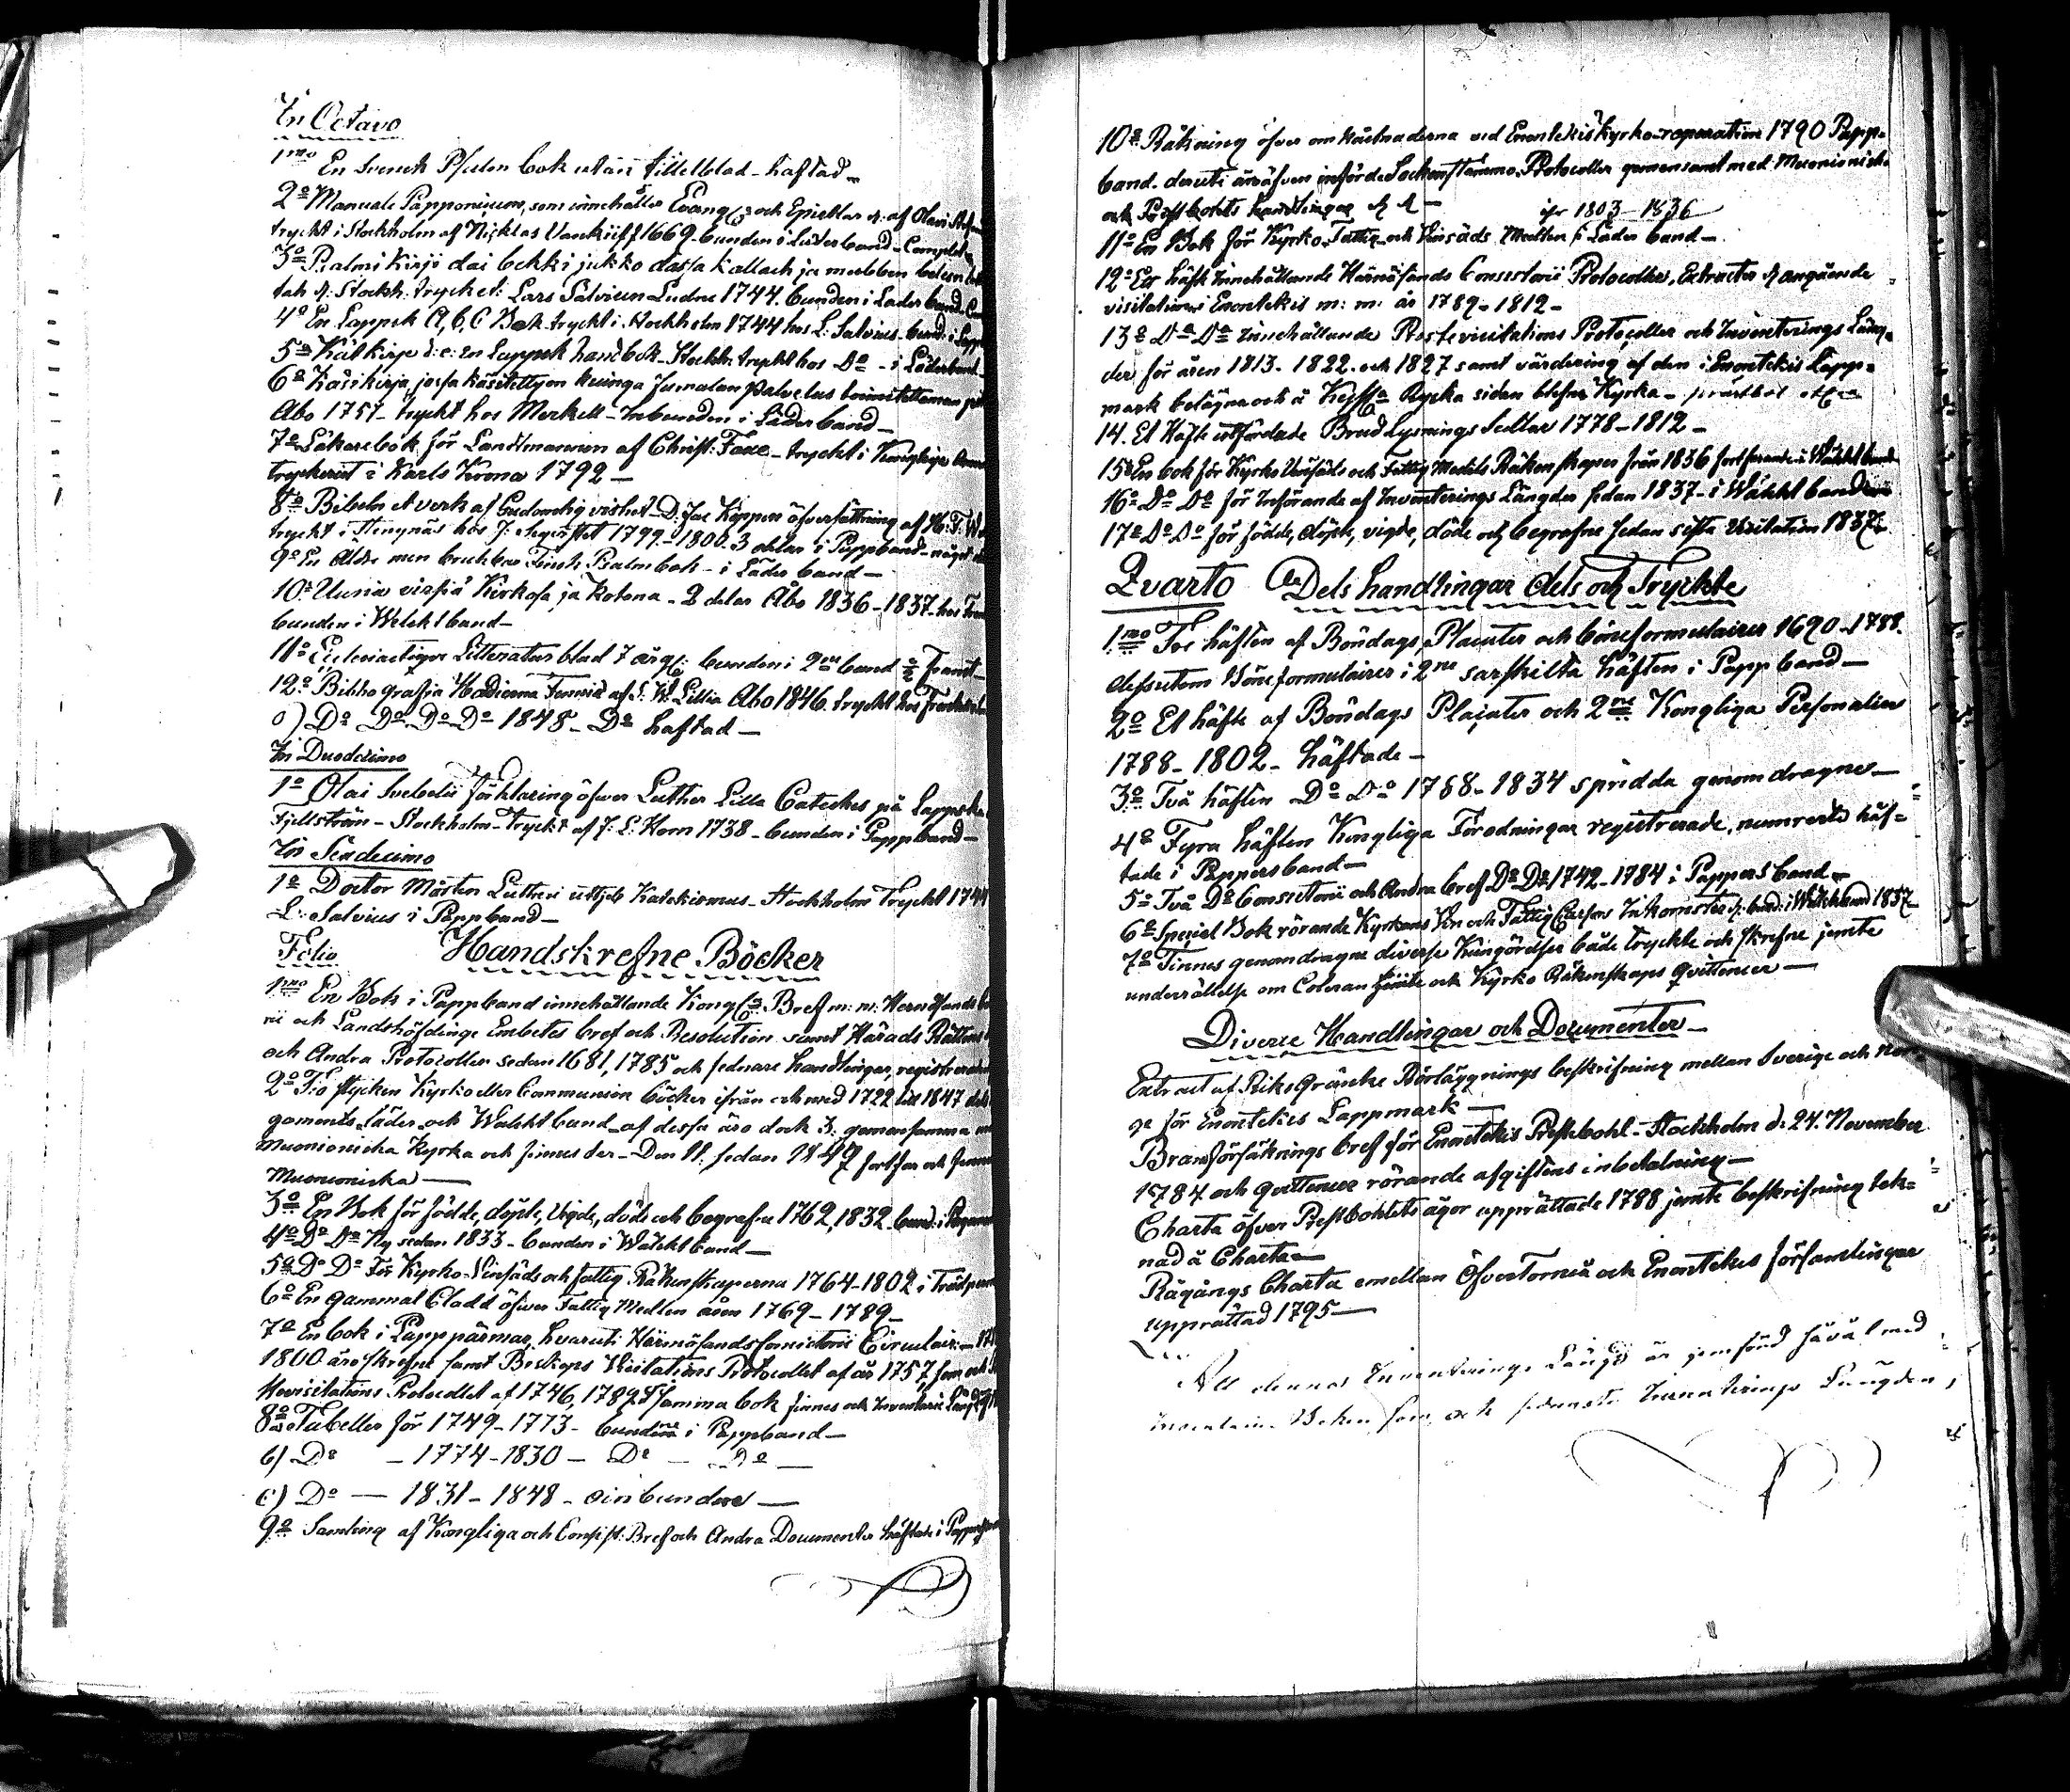 In Octavo
1mo En Svensk Psalm bok utan tittelblad - häftad -
2o Manuale Lapponicum, som innehåller Evangel: och Epistlar &. af Olavi
tryckt i Stockholm af Nicklas Vankiiff 1669 - bunden i Läderband - Complet
3o Psalmi Kirje dai bekki jukko dassa kallach ja mubben
tah &: Stockh. tryckt: Lars Salvius 1744. bunden i Läder band
4o En Lappsk A, B, C Bok tryckt i Stockholm 1744 hos L: Salvius - bund: i
5o Kätkirje d: e: en Lappsk handbok - Stockh: tryckt hos Do - i Läderband
6o Käsikirja, jossa käsitettyon kuinga Jumalan Palvelus toimitettaman
Åbo 1757 - tryckt hos Merkell - Inbunden i Läder band -
7o Läkarebok för Landtmannen af Christ: Faxe - tryckt i Kongliga
tryckeriet i Karls Krona 1792 -
8o Bibeln et verk af Gudomlig vishet - D: Joe Köppen öfversättning af
tryckt i Strengnäs hos 1799 - 1800. 3 delar i Pappband - något
9o En Äldre men brukbar Finsk Psalmbok - i Läder band -
10o Uunia virsiä Kirkosa ja kotona - 2 delar Åbo 1836 - 1837 - hos
bunden i Welsktband -
11o Ecclesiastique Litteratur blad 7 årg: bunden i 2ne band
12o Bibliografia Hodierna Fennica af Lillia Åbo 1846. tryckt hos
o) Do Do Do Do 1848 - Do häftad -
In Duodecimo
1o Olai Svebelii förklaring öfwer Luther Lilla Cateches på Lappska
Fjellström - Stockholm - Tryckt af J: L: Horn 1738 - bunden i Pappband -
In Sexdecimo
1o Doctor Mårten Lutheri Katekismus - Stockholm Tryckt 1744
L: Salvius i Pappband -
Folio Handskrefne Böcker
1mo En Bok i Pappband innehållande Kongl: Bref m: m: Hernösands
rii och Landshöfdinge Embetes bref och Resolution samt Härads Rättens
och Andra Protocoller sedan 1681, 1785 och sednare handlingar, registrerade
2o Tio stycken Kyrko eller Communion böcker ifrån och med 1722 till 1847 dels
gaments, läder och Wälskt band - af dessa äro dock 3: gemensamma med
Muonioniska Kyrka och finnes der - Den 11: sedan 1847 fortfar och finnes
Muonioniska -
3o En Bok för födde, döpte, Vigde, döde och begrafne 1762, 1832 - bund: i
4o Do Do Ny sedan 1833 - bunden i Wälskt band -
5o Do Do För Kyrko Vinsäds och fattig Räkenskaperna 1764 - 1802 i
6o En gammal Cladd öfwer Fattig Medlen åren 1769 - 1789 -
7o En bok i Papppärmar, hvaruti Hernösands Consistorii Circulair: -
1800 äro skrefne samt Biskops Visitations Protocollet af år 1757, som och
Visitations Protocollet af 1746, 1782 & samma bok finnes och Inventarii Längd
8o a) Tabeller för 1749 - 1773 - bundne i Pappband -
b) Do - 1774 - 1830 - Do - Do -
c) Do - 1831 - 1848 - oinbundne -
9o Samling af Kongliga och Consist: Bref och Andra Documenter häftade i
10o Räkning öfver omkåstnaderna vid Enontekis Kyrko-reparation 1790 Papp-
band. deruti äro äfven införde Sockenstämmo Protocoller gemensamt med Muonioniska
och Prästbohls handlingar & & -
ifr 1803 - 1836
11o En Bok för Kyrko, Fattig och Vinsäds Medlen i Läder band -
12o Ett häft Innehållande Hernösands Consistorii Protocoller, Extracter & angående
visitationer i Enontekis m: m: år 1789 - 1812 -
13o Do Do Innehållande Prostevisitations Protocoller och Inventerings Läng-
der för åren 1813. 1822. och 1827 samt värdering af den i Enontekis Lapp-
mark belägna och å Ryska sidan blefne Kyrka - prästbol etc
14. Et Häfte utfärdade Brudlysnings Sedlar 1778 - 1812 -
15o En bok för Kyrko Vinsäds och Fattig Medels Räkenskaper från 1836 fortfarande i Wälskt band
16o Do Do för Införande af Inventerings Längder sedan 1837 - i Wälskt band
17o Do Do för födde, döpte, vigde, döde och begrafne sedan sista Visitation 1837.
Qvarto Dels handlingar dels och Tryckte
1mo Tre häften af Böndags Placater och böneformulairer 1690 - 1788.
dessutom Böneformulairer i 2ne särskilta häften i Pappband -
2o Et häfte af Böndags Placater och 2ne Kongliga Personalier
1788 - 1802 - häftade -
3o Två häften Do Do 1768 - 1834 spridda genomdragne -
4o Fyra häften Kongliga Förodningar registrerade, numrerte häf-
tade i Pappersband -
5o Två Do Consistorii och Andra bref Do Do 1742 - 1784 i Pappers band
6o Speciel Bok rörande Kyrkans Vin och Fattig Cassans Inkomster &: bund: i Wälskt band 1837 -
7o Finnes genomdragne diverse Kungörelser både Tryckte och skrefne jemte
underrättelse om Coleran och Kyrko Räkenskaps Qvittencer -
Diverse Handlingar och Documenter -
Extract af Riks Gränse Rörläggnings beskrifning mellan Sverige och Nor-
ge för Enontekis Lappmark -
Brandförsäkrings bref för Enontekis Prestebohl - Stockholm d: 24. November
1784 och qvittencer rörande afgiftens inbetalning -
Charta öfver Prestbohlets ägor upprättade 1788 jemte beskrifning tek-
nad å Charta -
Rågångs Charta emellan Öfvertorneå och Enontekis församlingar
upprättad 1795 -
At denna Inventerings Längd är jemförd såväl med
Inventarii Boken som och sednaste Inventerings Längden,